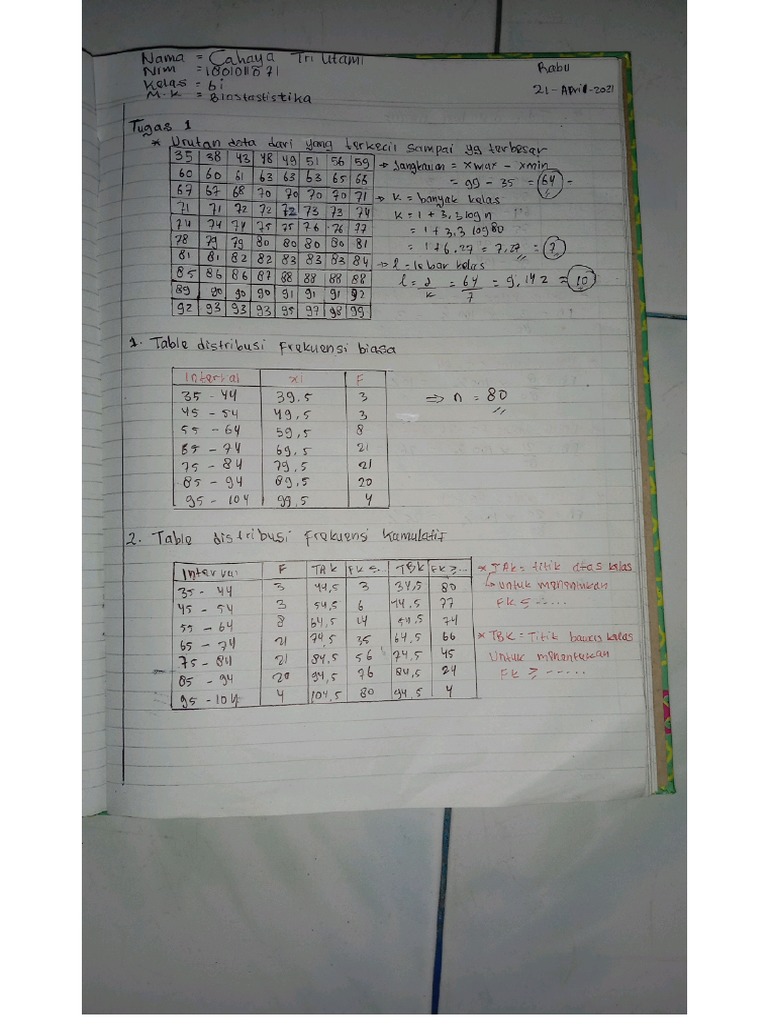 Nama = Cahaya Tri Utami
Nim = 1801011071
Kelas = 6i
M.K = Biostastistika
Rabu
21-April-2021
Tugas 1
* Urutan data dari yang terkecil sampai yg terbesar
35 38 43 48 49 51 56 59
60 60 61 63 63 63 65 66
67 67 68 70 70 70 70 71
71 71 72 72 72 73 73 74
74 74 74 75 75 76 76 77
78 79 79 80 80 80 80 81
81 81 82 82 83 83 83 84
85 86 86 87 88 88 88 88
89 90 90 90 91 91 91 92
92 93 93 93 95 97 98 99
→ Jangkauan = xmax - xmin
= 99 - 35 = 64
→ k = banyak kelas
k = 1 + 3,3 log n
= 1 + 3,3 log 80
= 1 + 6,27 = 7,27 = 7
→ l = lebar kelas
l = J/k = 64/7 = 9,142 = 10
1. Table distribusi frekuensi biasa
Interval xi F
35 - 44 39.5 3
45 - 54 49,5 3
55 - 64 59,5 8
65 - 74 69,5 21
75 - 84 79,5 21
85 - 94 89,5 20
95 - 104 99,5 4
⇒ n = 80
2. Table distribusi frekuensi kamulatif
Interval F TAK FK ≤ TBK FK ≥ ...
35 - 44 3 44,5 3 34,5 80
45 - 54 3 54,5 6 44,5 77
55 - 64 8 64,5 14 54,5 74
65 - 74 21 74,5 35 64,5 66
75 - 84 21 84,5 56 74,5 45
85 - 94 20 94,5 76 84,5 24
95 - 104 4 104,5 80 94,5 4
* TAK = titik atas kelas
↳ untuk menentukan
FK ≤ .....
* TBK = Titik bawas kelas
Untuk menentukan
Fk ≥ .....